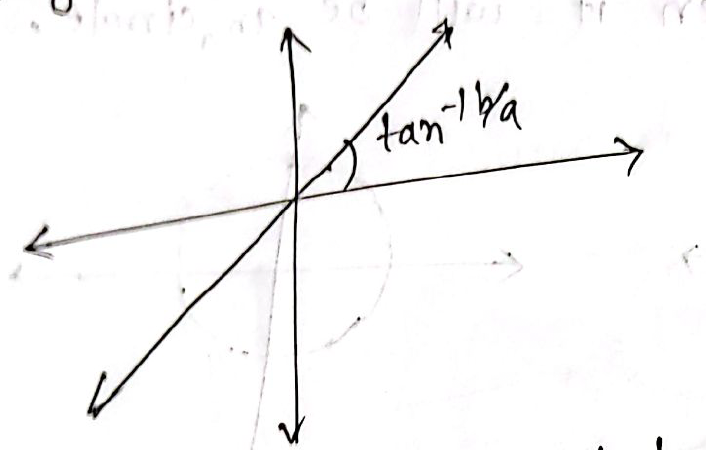 tan⁻¹ b/a